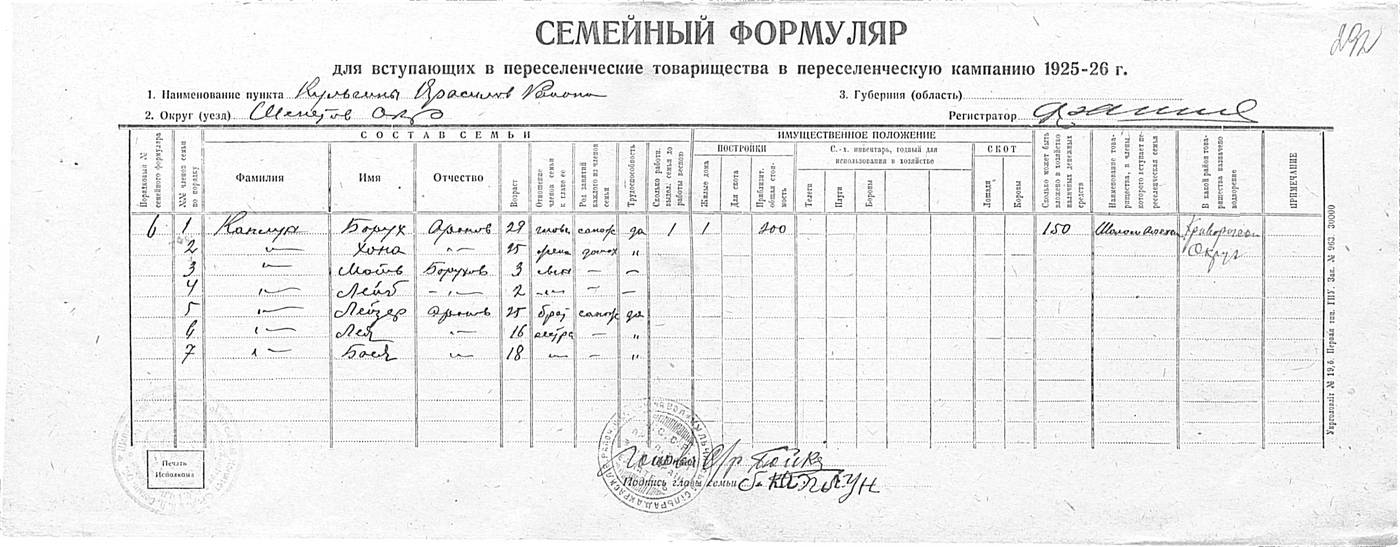 292
СЕМЕЙНЫЙ ФОРМУЛЯР
для вступающих в переселенческие товарищества в переселенческую кампанию 1925-26 г.
1. Наименование пункта Кульчины Красилов Района
3. Губерния (область)
2. Округ (уезд) Шепетов Окр
Регистратор
СОСТАВ СЕМЬИ
ИМУЩЕСТВЕННОЕ ПОЛОЖЕНИЕ
ПОСТРОЙКИ
С.-х. инвентарь, годный для использования в хозяйстве
СКОТ
Порядковый № семейного формуляра
№№ членов семьи по порядку
Фамилия
Имя
Отчество
Возраст
Отношение членов семьи к главе ее
Род занятий каждого из членов семьи
Трудоспособность
Сколько работн. выдел. семья до работы весною
Жилые дома
Для скота
Приблизит. общая стоимость
Телеги
Плуги
Бороны
Лошади
Коровы
Сколько может быть вложено в хозяйство наличных денежных средств
Наименование товарищества, в члены которого вступает переселенческая семья
В какой район товарищества назначено водворение
ПРИМЕЧАНИЕ
6 1 Каплун Борух Аронов 29 голова сапож да 1 1 200 150 Шолом Криворожск
2 " Хона " 25 жена домох " Округ
3 " Мотль Борухов 3 сын — —
4 " Лейб " 2 " — —
5 " Лейзер Аронов 25 брат сапож да
6 " Лея " 16 сестра — "
7 " Бася " 18 " — "
Печать Исполкома
Голова С/р Бойко
Подпись главы семьи Б. Каплун
Укрголовліт № 19,6. Первая тип. ГПУ. Зак. № 963. 30000